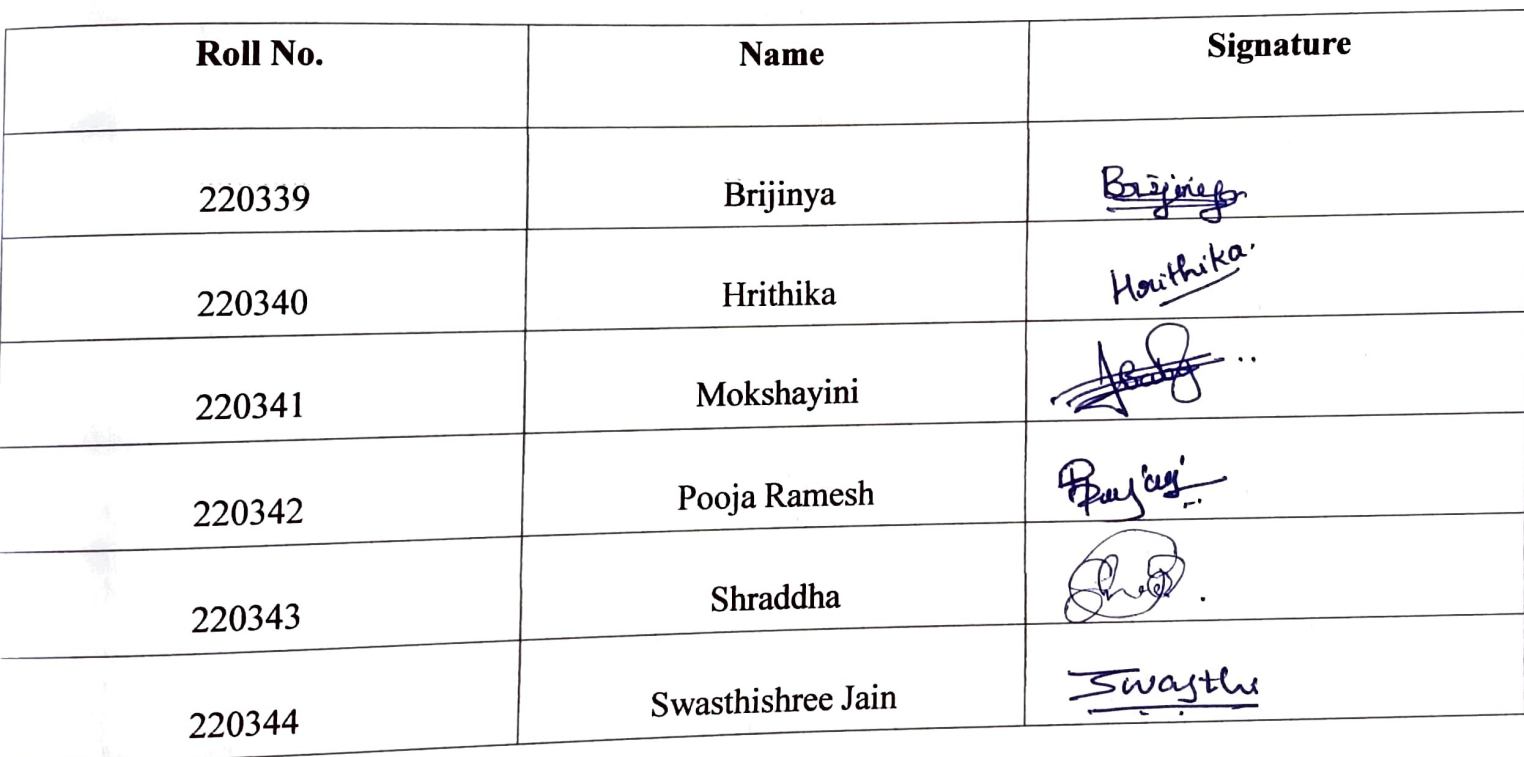 Roll No. Name Signature
220339 Brijinya Brijinya
220340 Hrithika Hrithika.
220341 Mokshayini
220342 Pooja Ramesh
220343 Shraddha
220344 Swasthishree Jain Swasthi